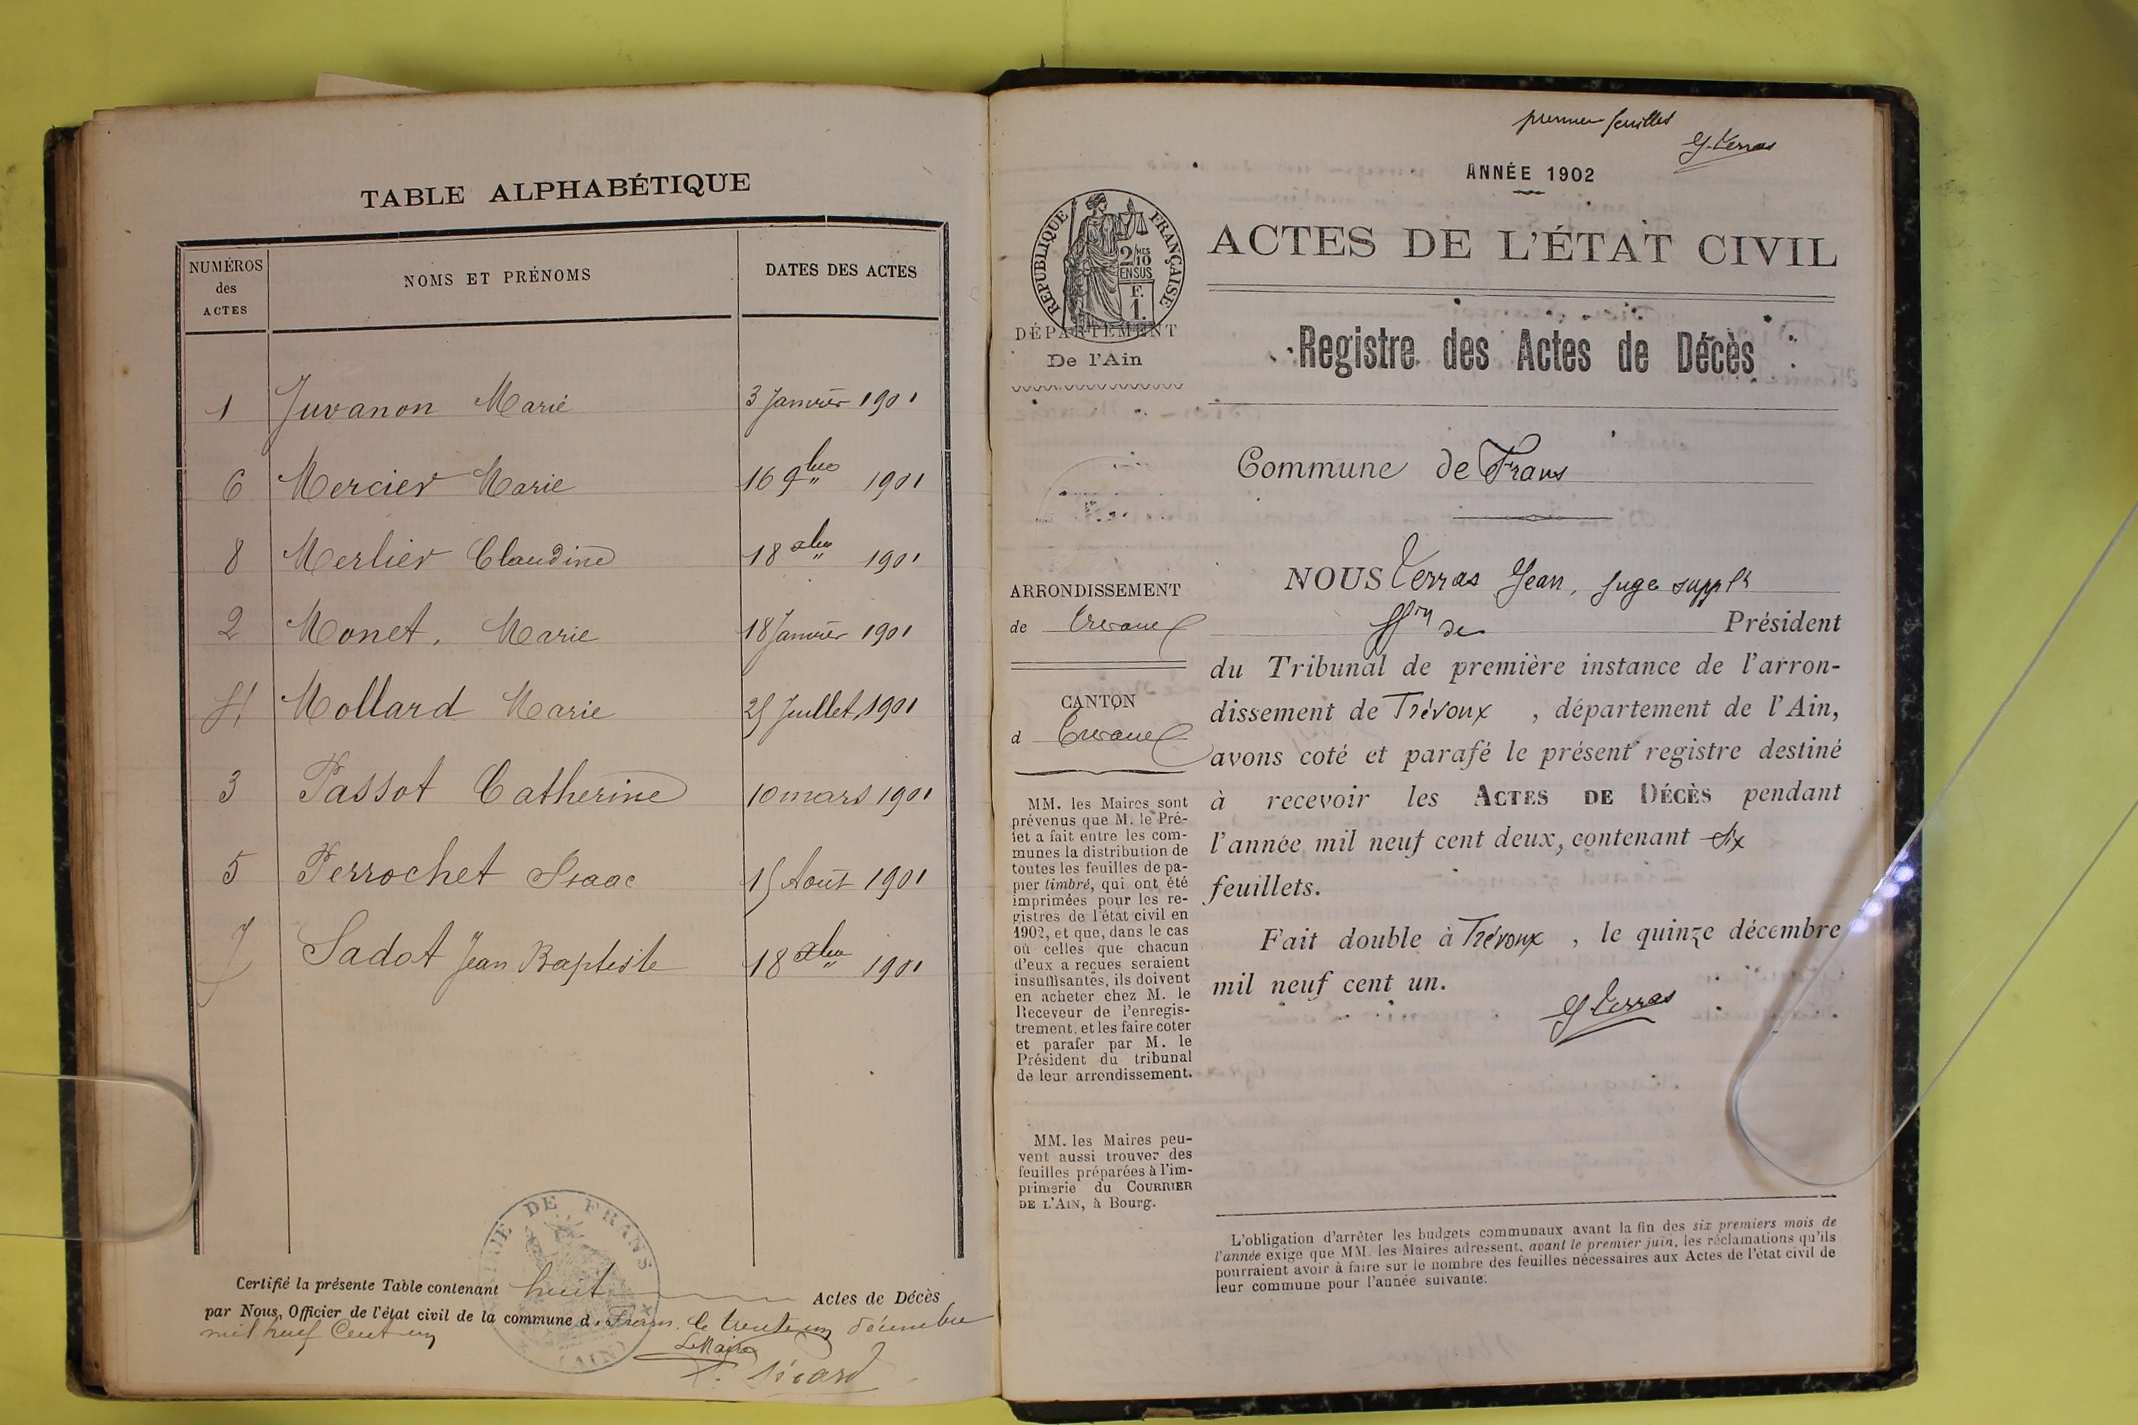 TABLE ALPHABÉTIQUE
NUMÉROS des ACTES NOMS ET PRÉNOMS DATES DES ACTES
1 Juvanon Marie 3 Janvier 1901
6 Mercier Marie 16 9bre 1901
8 Merlier Claudine 18 xbre 1901
2 Monet, Marie 18 Janvier 1901
4 Mollard Marie 25 Juillet 1901
3 Passot Catherine 10 mars 1901
5 Perrochet Isaac 15 Août 1901
7 Sadot Jean Baptiste 18 xbre 1901
MAIRIE DE FRANS
(AIN)
Certifié la présente Table contenant huit Actes de Décès
par Nous, Officier de l'état civil de la commune d. Frans, le trente un décembre
mil neuf cent un
Le Maire
premier feuillet
J. Terras
ANNÉE 1902
RÉPUBLIQUE FRANÇAISE
2/10 EN SUS
F. 1.
DÉPARTEMENT
De l'Ain
ACTES DE L'ÉTAT CIVIL
Registre des Actes de Décès
Commune de Frans
ARRONDISSEMENT
de Trévoux
CANTON
d Trévoux
MM. les Maires sont
prévenus que M. le Pré-
fet a fait entre les com-
munes la distribution de
toutes les feuilles de pa-
pier timbré, qui ont été
imprimées pour les re-
gistres de l'état civil en
1902, et que, dans le cas
où celles que chacun
d'eux a reçues seraient
insuffisantes, ils doivent
en acheter chez M. le
Receveur de l'enregis-
trement, et les faire coter
et parafer par M. le
Président du tribunal
de leur arrondissement.
MM. les Maires peu-
vent aussi trouver des
feuilles préparées à l'im-
primerie du COURRIER
DE L'AIN, à Bourg.
NOUS Terras Jean, juge suppt
ffon de Président
du Tribunal de première instance de l'arron-
dissement de Trévoux , département de l'Ain,
avons coté et parafé le présent registre destiné
à recevoir les ACTES DE DÉCÈS pendant
l'année mil neuf cent deux, contenant six
feuillets.
Fait double à Trévoux , le quinze décembre
mil neuf cent un.
J. Terras
L'obligation d'arrêter les budgets communaux avant la fin des six premiers mois de
l'année exige que MM. les Maires adressent, avant le premier juin, les réclamations qu'ils
pourraient avoir à faire sur le nombre des feuilles nécessaires aux Actes de l'état civil de
leur commune pour l'année suivante.